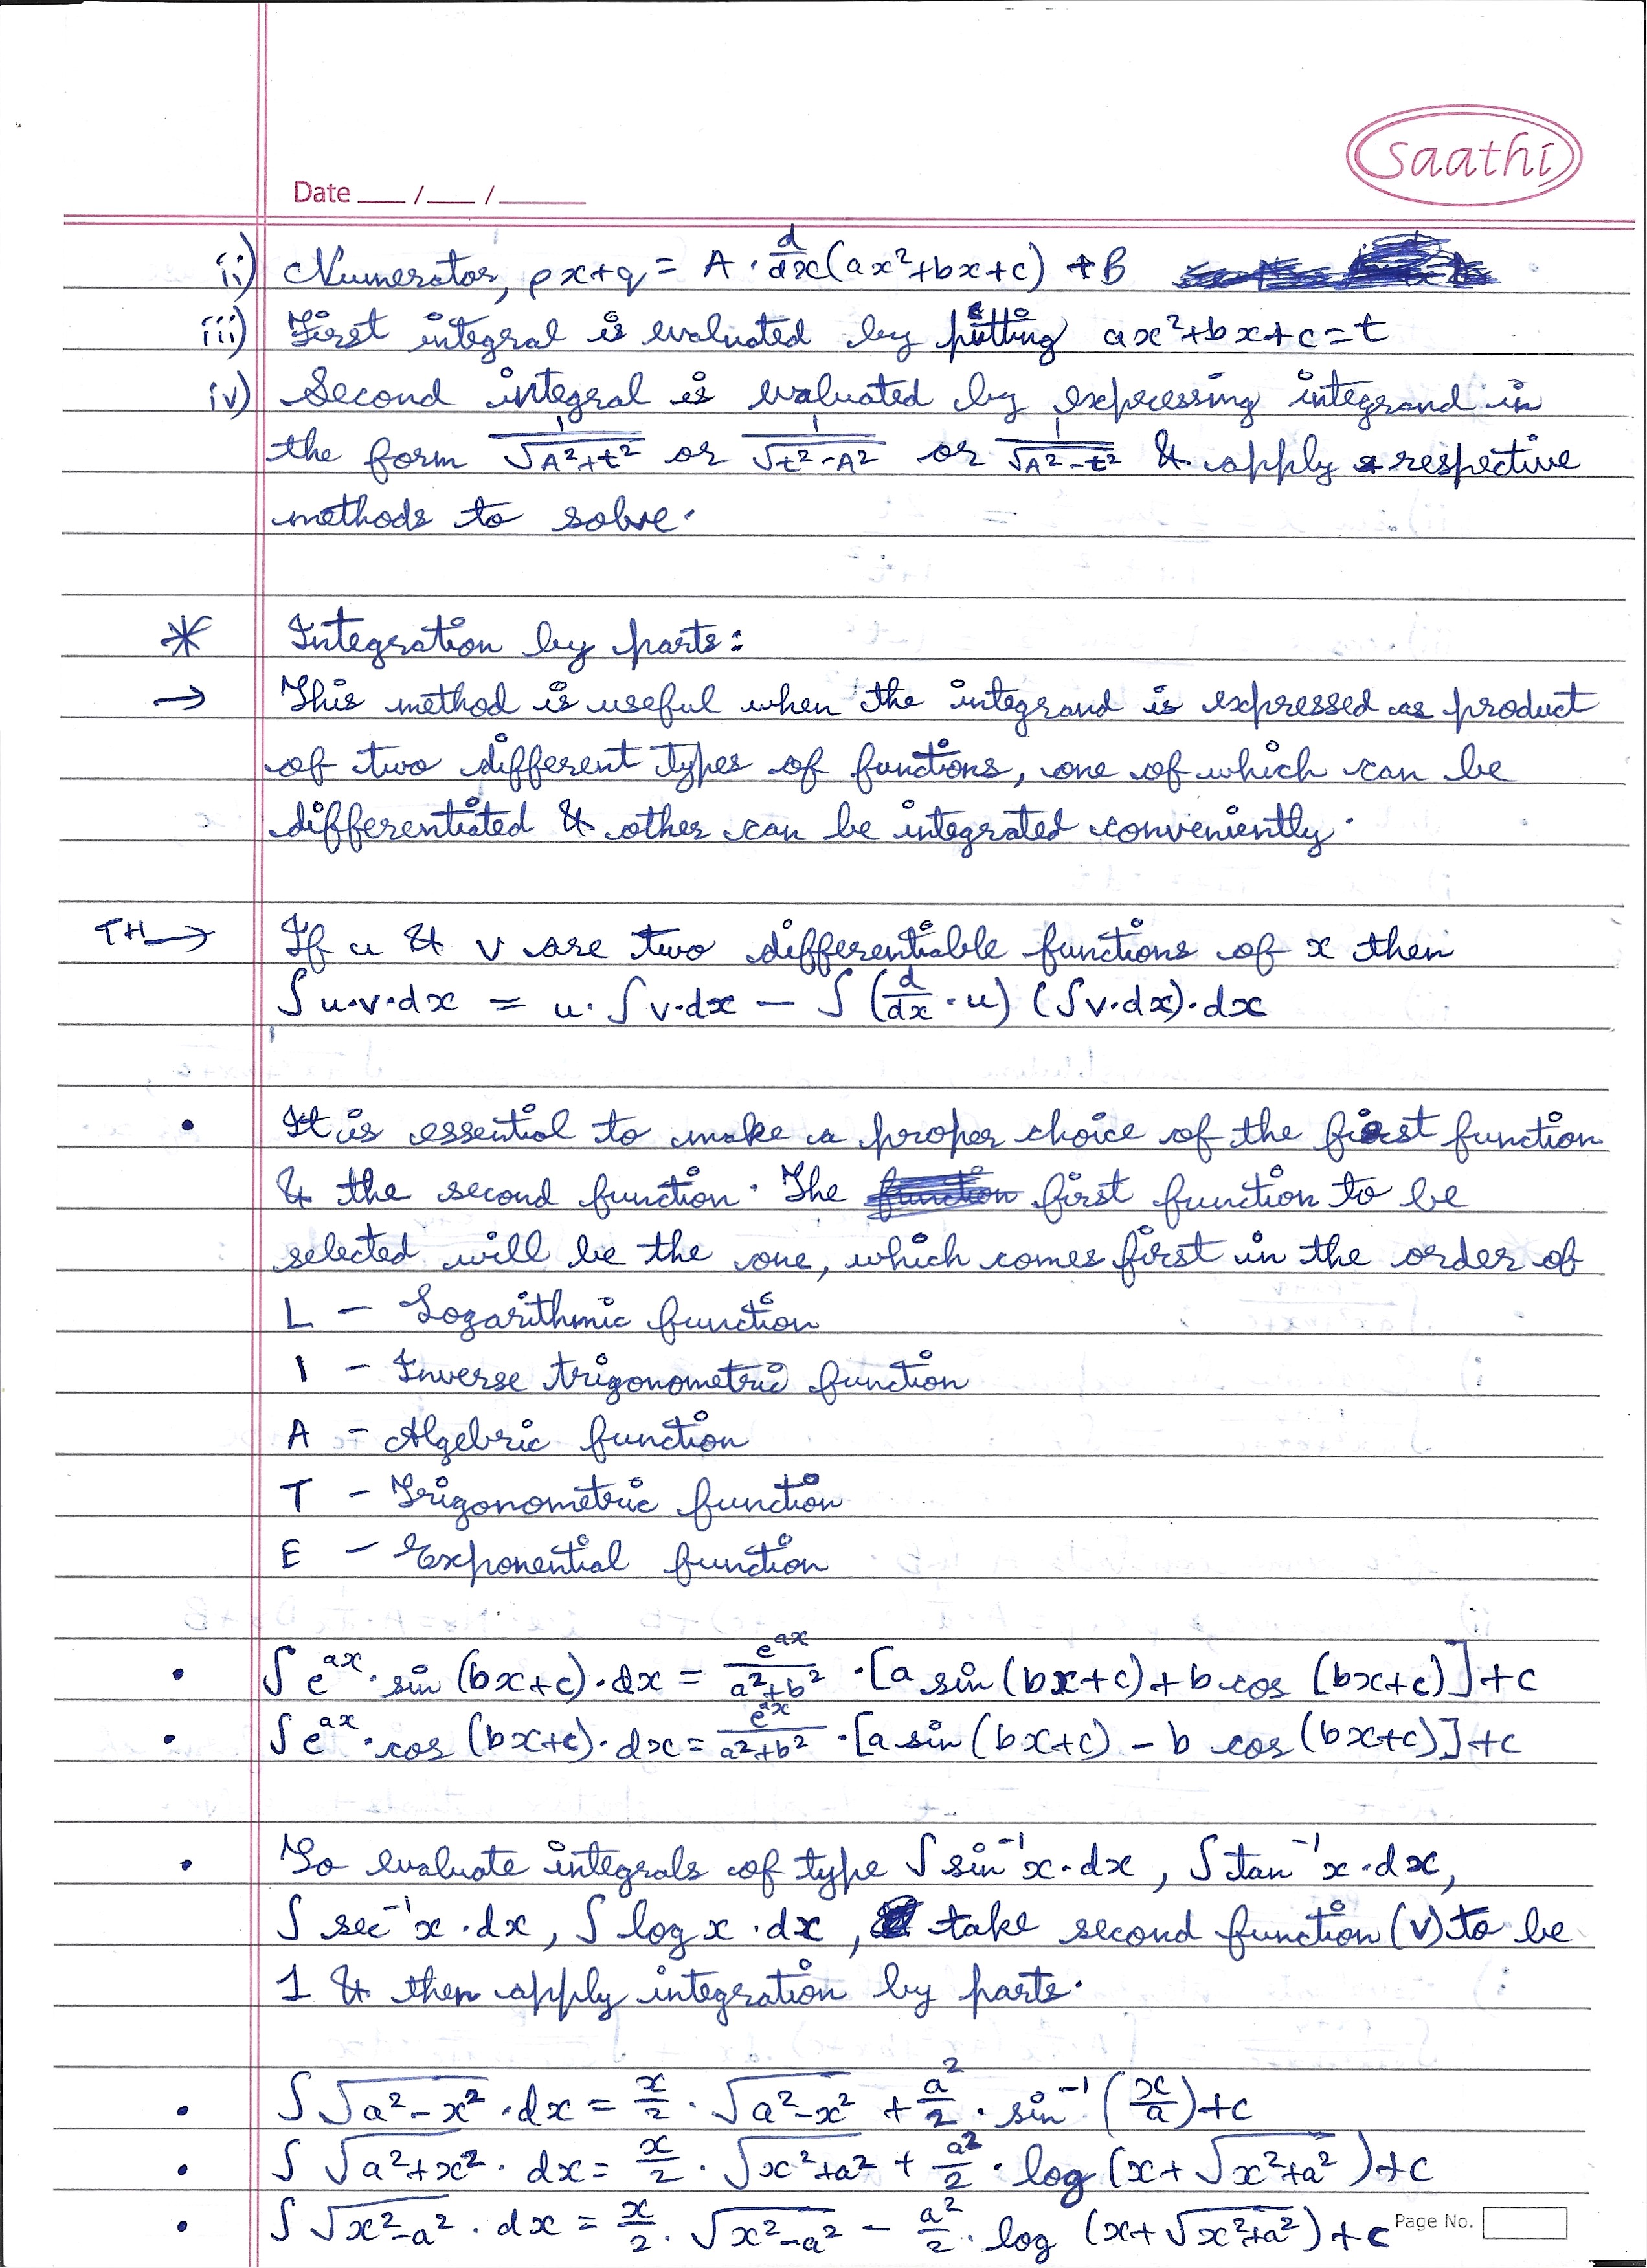 saathi
Date ___/___/_____
ii) Numerator, px+q = A · d/dx (ax²+bx+c) + B
iii) First integral is evaluated by putting ax²+bx+c=t
iv) Second integral is evaluated by expressing integrand in
the form 1/√(A²+t²) or 1/√(t²-A²) or 1/√(A²-t²) & apply respective
methods to solve.
* Integration by parts:
→ This method is useful when the integrand is expressed as product
of two different types of functions, one of which can be
differentiated & other can be integrated conveniently.
TH → If u & v are two differentiable functions of x then
∫u·v·dx = u·∫v·dx − ∫(d/dx · u) (∫v·dx)·dx
• It is essential to make a proper choice of the first function
& the second function. The first function to be
selected will be the one, which comes first in the order of
L – Logarithmic function
I – Inverse trigonometric function
A – Algebric function
T – Trigonometric function
E – Exponential function
• ∫e^ax · sin (bx+c)·dx = e^ax/(a²+b²) · [a sin (bx+c) + b cos (bx+c)] + c
• ∫e^ax · cos (bx+c)· dx = e^ax/(a²+b²) · [a sin (bx+c) − b cos (bx+c)] + c
• To evaluate integrals of type ∫sin⁻¹x·dx, ∫tan⁻¹x·dx,
∫sec⁻¹x·dx, ∫log x·dx, take second function (v) to be
1 & then apply integration by parts.
• ∫√(a²−x²)·dx = x/2 · √(a²−x²) + a²/2 · sin⁻¹(x/a)+c
• ∫√(a²+x²)·dx = x/2 · √(x²+a²) + a²/2 · log (x+√(x²+a²))+c
• ∫√(x²−a²)·dx = x/2 · √(x²−a²) − a²/2 · log (x+√(x²+a²))+c
Page No.